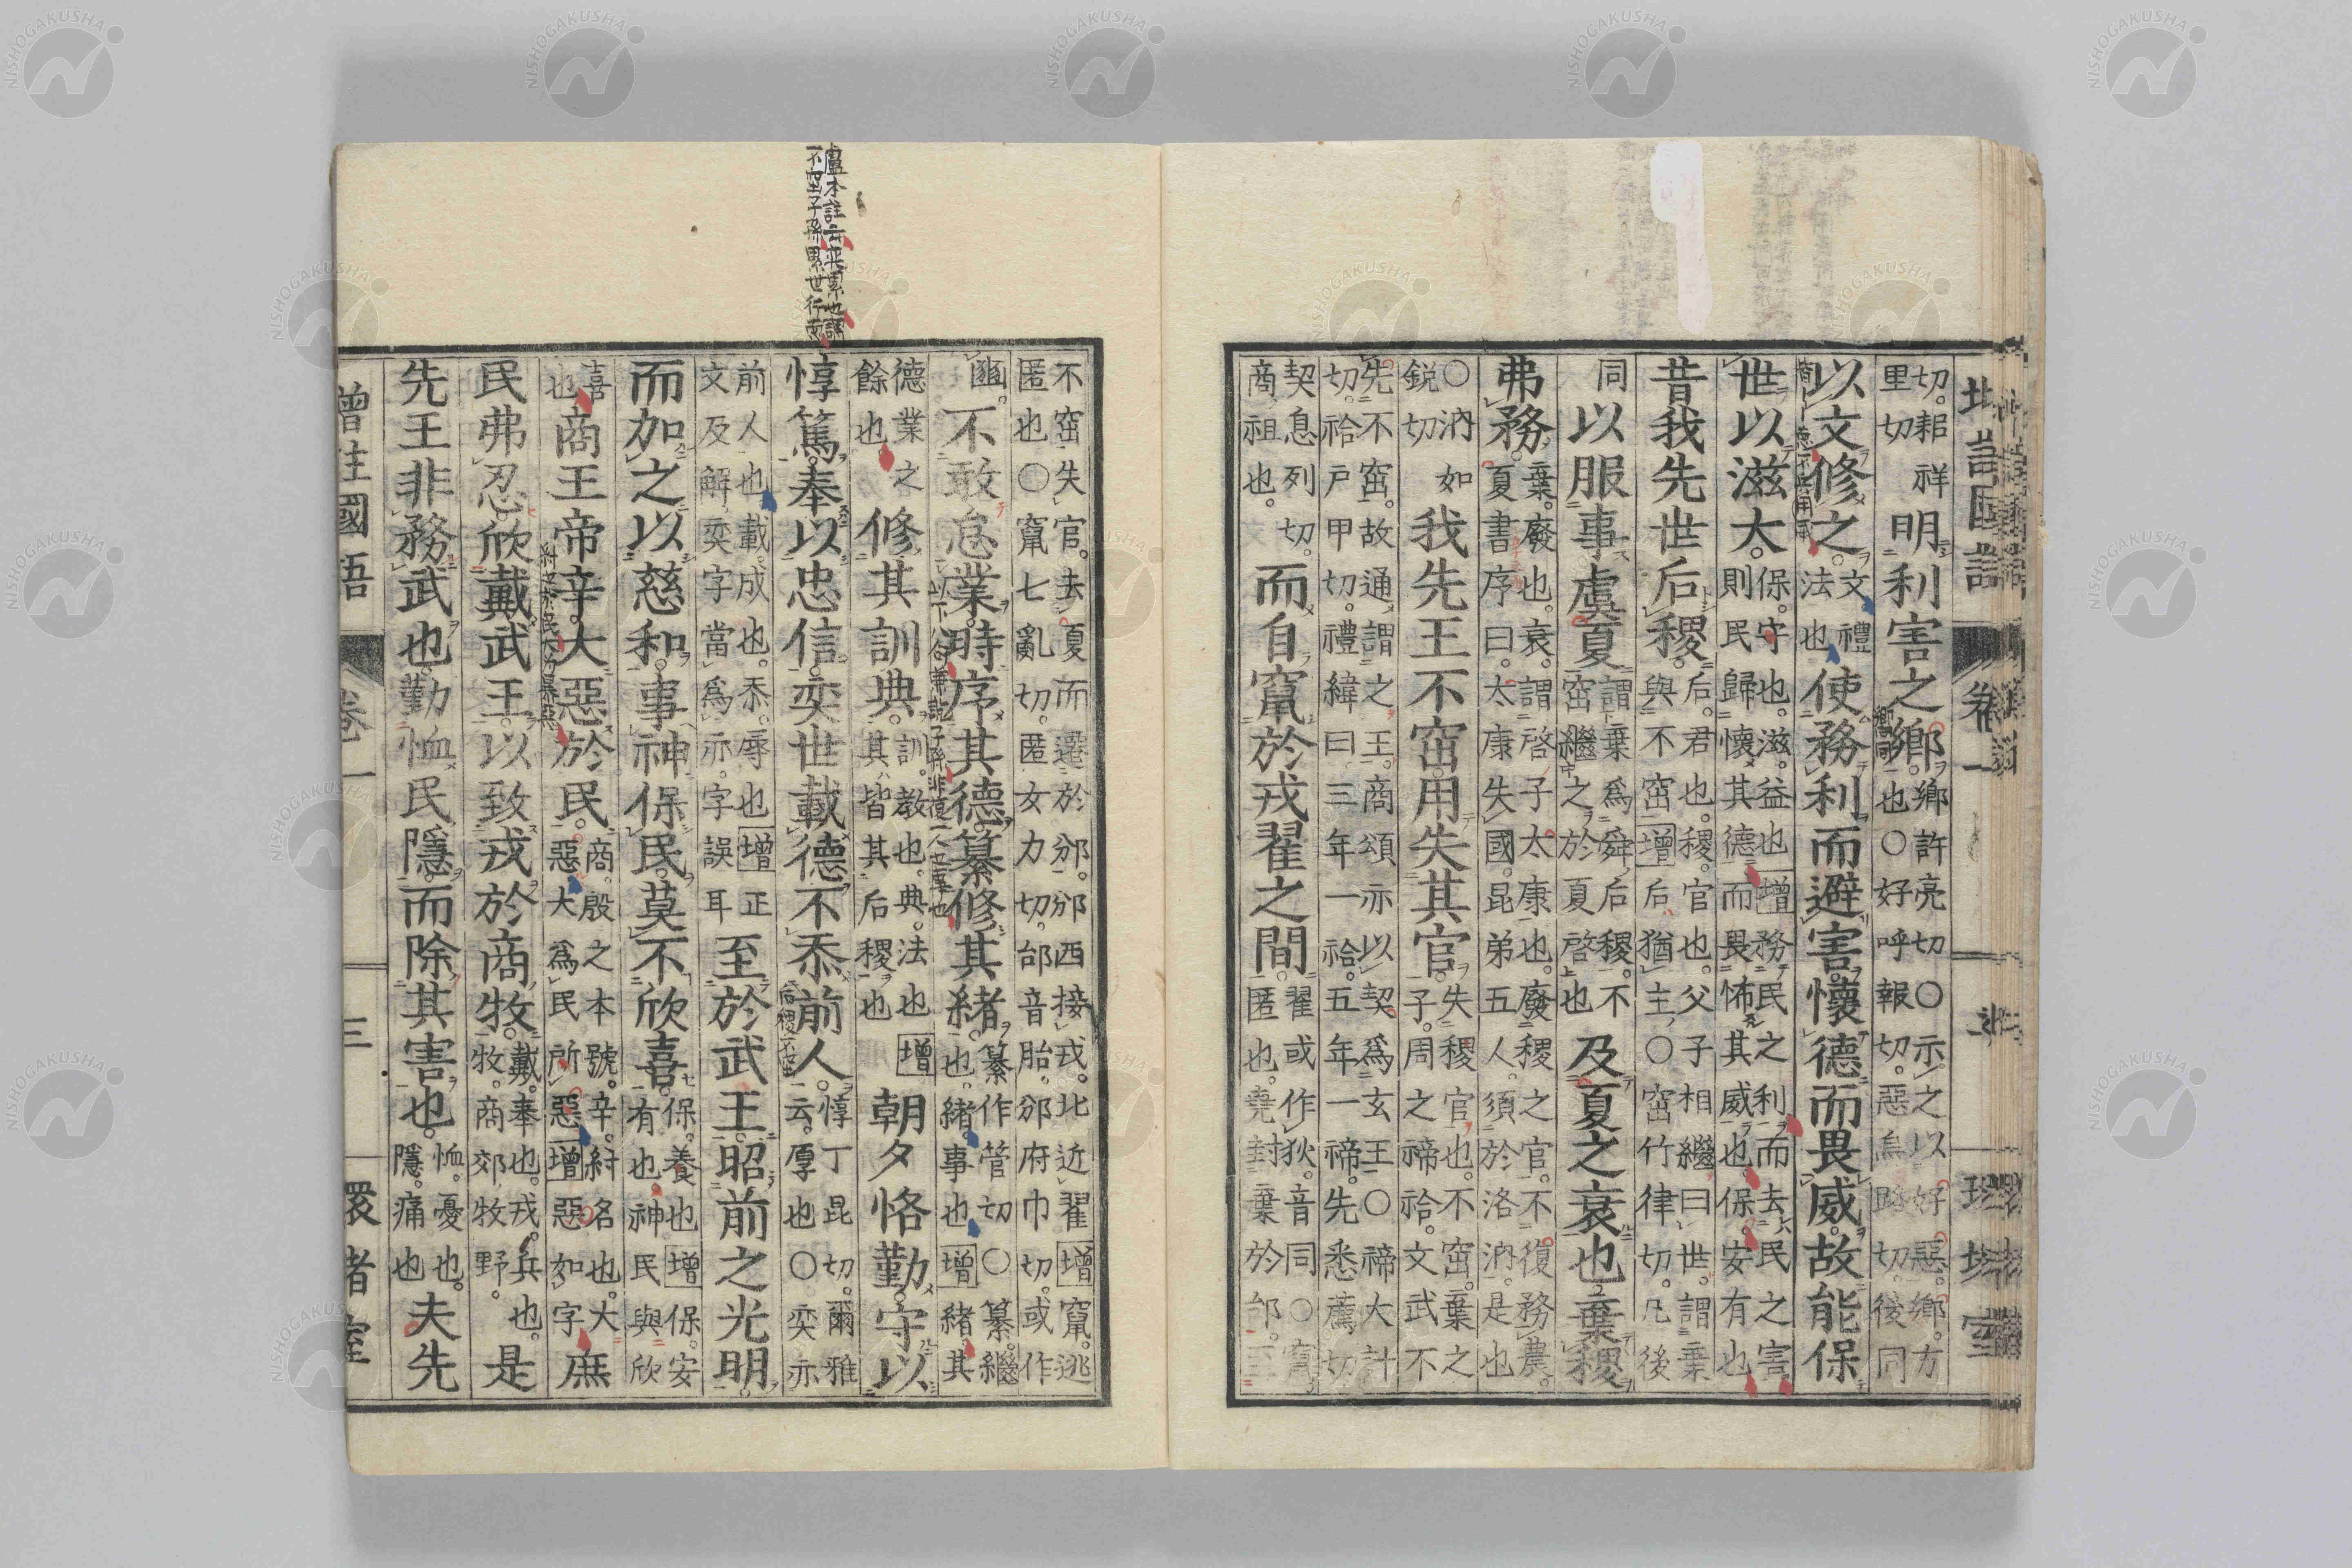 切。耜祥
里切
明利害之鄉。
鄉許亮切○示之以好惡。鄉。方
也○好呼報切。惡烏路切。後同
以文修之。
文禮
法也
使務利而避害。懷德而畏威。故能保
世以滋大。
保。守也。滋。益也增務民之利而去民之害
則民歸懷其德而畏怖其威也。保。安有也
昔我先世后稷。
后。君也。稷。官也。父子相繼曰世。謂棄
與不窋增后猶主○窋竹律切。凡後
同
以服事虞夏
謂棄爲舜后稷。不
窋繼之於夏啓也
及夏之衰也。棄稷
弗務。
棄。廢也。衰。謂啓子太康也。廢稷之官。不復務農。
夏書序曰。太康失國。昆弟五人。須於洛汭。是也
○汭如
銳切
我先王不窋用失其官。
失稷官也。不窋。棄之
子。周之禘祫。文武不
先不窋。故通謂之王。商頌亦以契爲玄王○禘大計
切。祫戶甲切。禮緯曰三年一祫。五年一禘。先悉薦切
契息列切。
商祖也。
而自竄於戎翟之間。
翟或作狄。音同○竄
匿也。堯封棄於邰。至
不窋失官。去夏而遷於邠。邠西接戎。北近翟增竄。逃
匿也○竄七亂切。匿女力切。邰音胎。邠府巾切。或作
豳。
不敢怠業。時序其德。纂修其緒。
纂作管切○纂。繼
也。緒。事也增緒其
德業之
餘也。
修其訓典。
訓。教也。典。法也增
其皆其后稷也
朝夕恪勤。守以
惇篤。奉以忠信。奕世載德。不忝前人。
惇丁昆切。爾雅
云。厚也○奕亦
前人也載。成也。忝。辱也增正
文及解奕字當爲亦。字誤耳
至於武王。昭前之光明。
而加之以慈和。事神保民。莫不欣喜。
保。養也增保。安
有也。神民與欣
喜
也
商王帝辛。大惡於民。
商。殷之本號。辛。紂名也。大
惡。大爲民所惡增惡如字
庶
民弗忍。欣戴武王。以致戎於商牧。
戴。奉也。戎。兵也。
牧。商郊牧野。
是
先王非務武也。勤恤民隱。而除其害也。
恤。憂也。
隱。痛也
夫先
增註國語 卷一 三